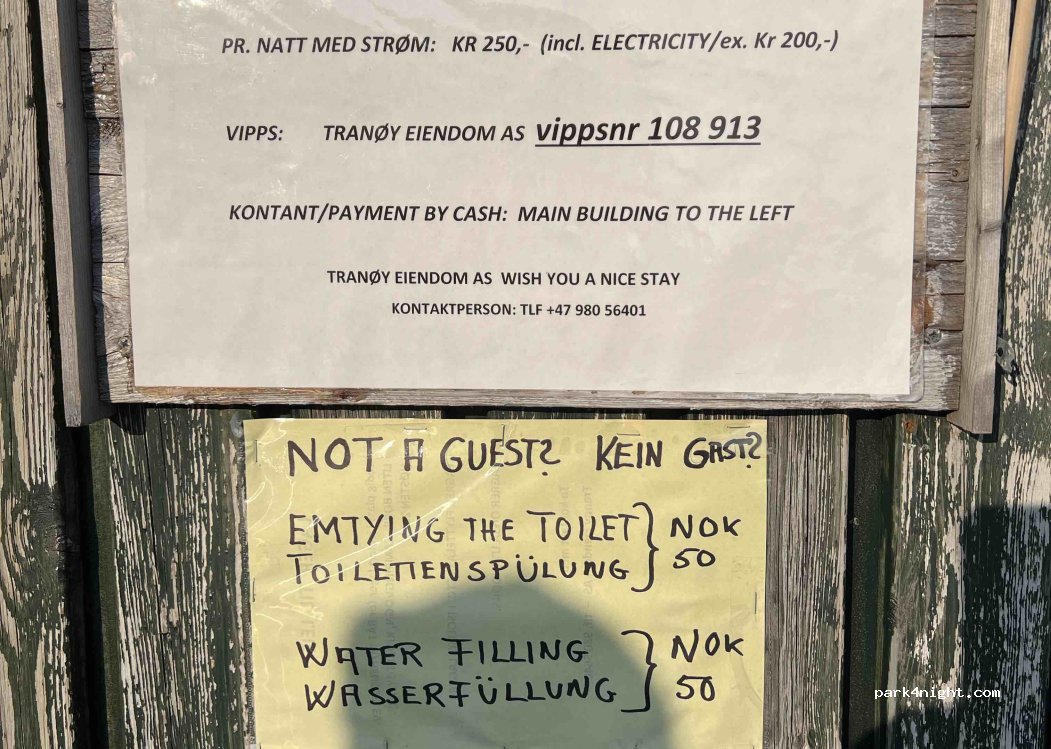 PR. NATT MED STRØM: KR 250,- (incl. ELECTRICITY/ex. Kr 200,-)
VIPPS: TRANØY EIENDOM AS vippsnr 108 913
KONTANT/PAYMENT BY CASH: MAIN BUILDING TO THE LEFT
TRANØY EIENDOM AS WISH YOU A NICE STAY
KONTAKTPERSON: TLF +47 980 56401
NOT A GUEST? KEIN GAST?
EMTYING THE TOILET } NOK
TOILETTENSPÜLUNG } 50
WATER FILLING } NOK
WASSERFÜLLUNG } 50
park4night.com